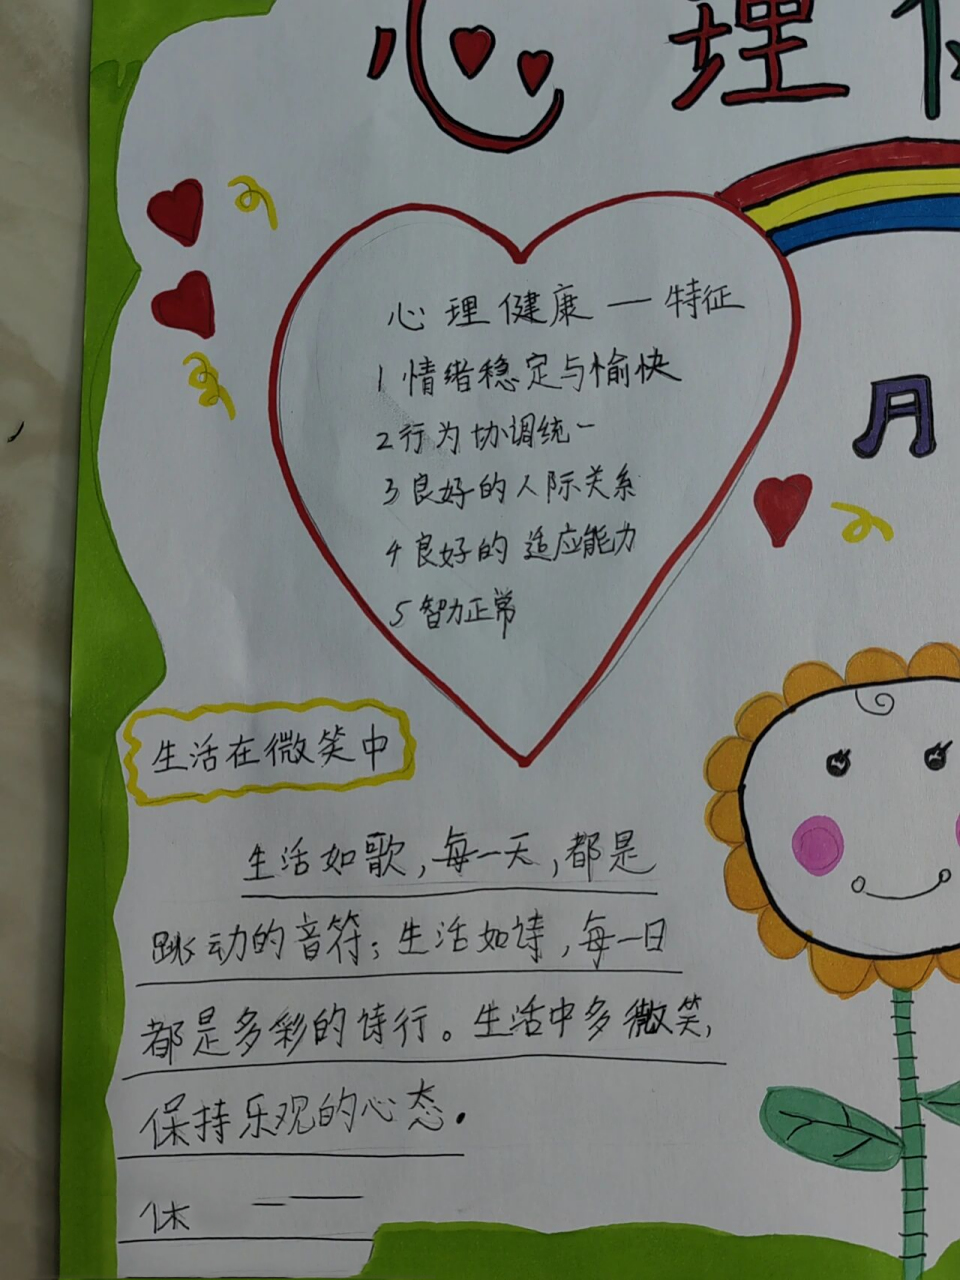 心理
心理健康一特征
1情绪稳定与愉快
2行为协调统一
3良好的人际关系
4良好的适应能力
5智力正常
月
生活在微笑中
生活如歌,每一天,都是
跳动的音符;生活如诗,每一日
都是多彩的诗行。生活中多微笑,
保持乐观的心态.